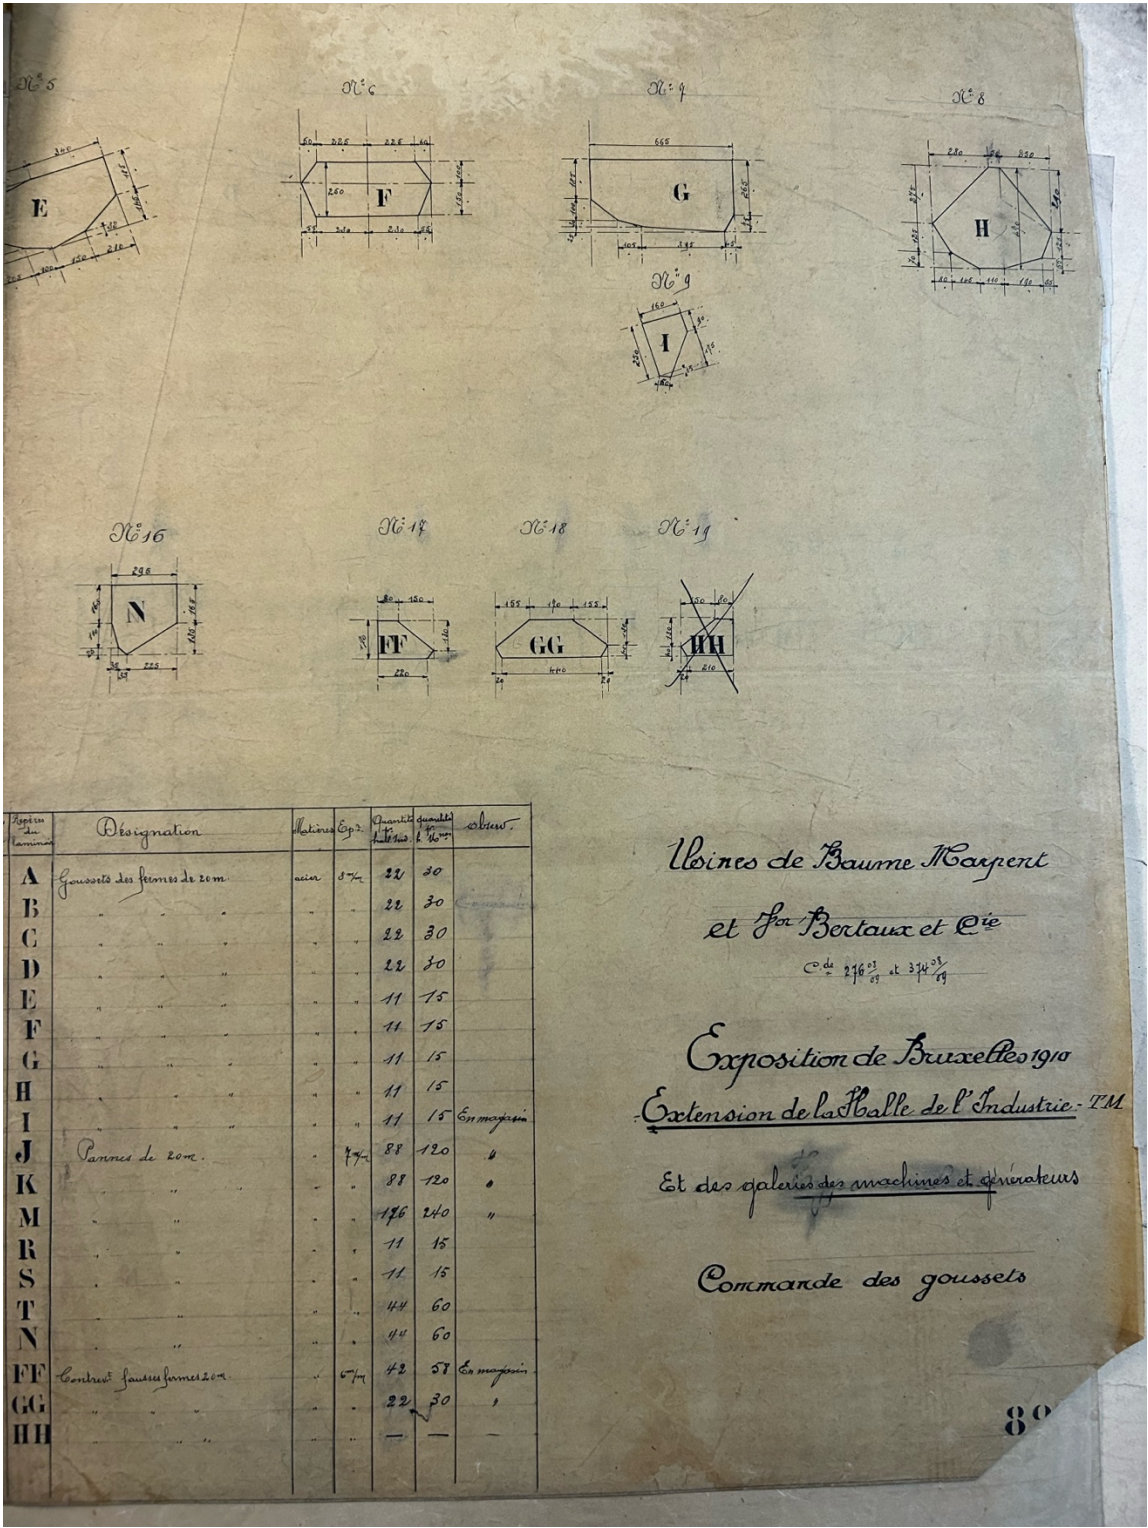 N° 5
N° 6
N° 7
N° 8
340
E
50 225 225 60
260
F
55 230 230 55
665
G
265
105 395 45
280 50 330
H
N° 9
160
I
250
175
N° 16
N° 17
N° 18
N° 19
295
N
225
80 150
FF
220
155 170 155
GG
440
20 20
150 80
HH
210
Repères du laminoir
Désignation
Matières
Epr.
Quantité pr
quantité pr
observ.
A Goussets des fermes de 20m. acier 8 m/m 22 30
B " " " " " 22 30
C " " " " " 22 30
D " " " " " 22 30
E " " " " " 11 15
F " " " " " 11 15
G " " " " " 11 15
H " " " " " 11 15
I " " " " " 11 15 En magasin
J Pannes de 20m. " 7 m/m 88 120 "
K " " " " 88 120 "
M " " " " 176 240 "
R " " " " 11 15
S " " " " 11 15
T " " " " 44 60
N " " " 44 60
FF Contrevt fausses fermes 20m. " 6 m/m 42 58 En magasin
GG " " " " " 22 30 "
HH " " " " — — —
Usines de Baume Marpent
et Jor Bertaux et Cie
Cde 276 03/09 et 374 03/09
Exposition de Bruxelles 1910
Extension de la Halle de l'Industrie - TM
Et des galeries des machines et générateurs
Commande des goussets